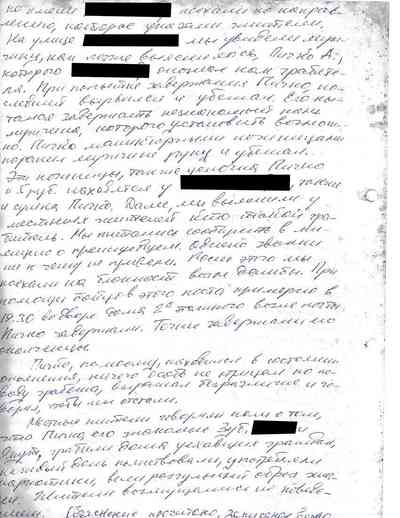 по кличке поехали по направ-
лению, которое указали жители.
На улице мы увидели муж-
чину, как позже выяснилось, Пичко А.,
которого опознал как грабите-
ля. При попытке задержания Пичко, по-
следний вырвался и убежал. Его пы-
тался задержать незнакомый нам
мужчина, которого установить возмож-
но. Пичко маникюрными ножницами
поранил мужчине руку и убежал.
Эти ножницы, также Пичко
и находятся у также
и сумка Пичко. Далее, мы выяснили у
местных жителей кто такой гра-
битель. Мы пытались сообщить в ми-
лицию о преступлении. Однако звонки
ни к чему не привели. После этого мы
поехали на блокпост возле дамбы. При
помощи бойцов этого поста примерно в
18.30 во дворе дома 2 возле почты
Пичко задержали. Точнее задержали его
ополченцы.
Пичко, по-моему, находился в состоянии
опьянения, ничего особо не отрицал по по-
воду грабежа, выражал безразличие и го-
ворил, чтобы мы отстали.
Местные жители говорили нам о том,
что Пичко, его знакомые Зуб, и
другие, грабили дома уехавших граждан,
каждый день пьянствовали, употребляли
наркотики, вели разгульный образ жиз-
ни. Жители возмущались их поведе-
нием. Объяснение прочитано, записано верно